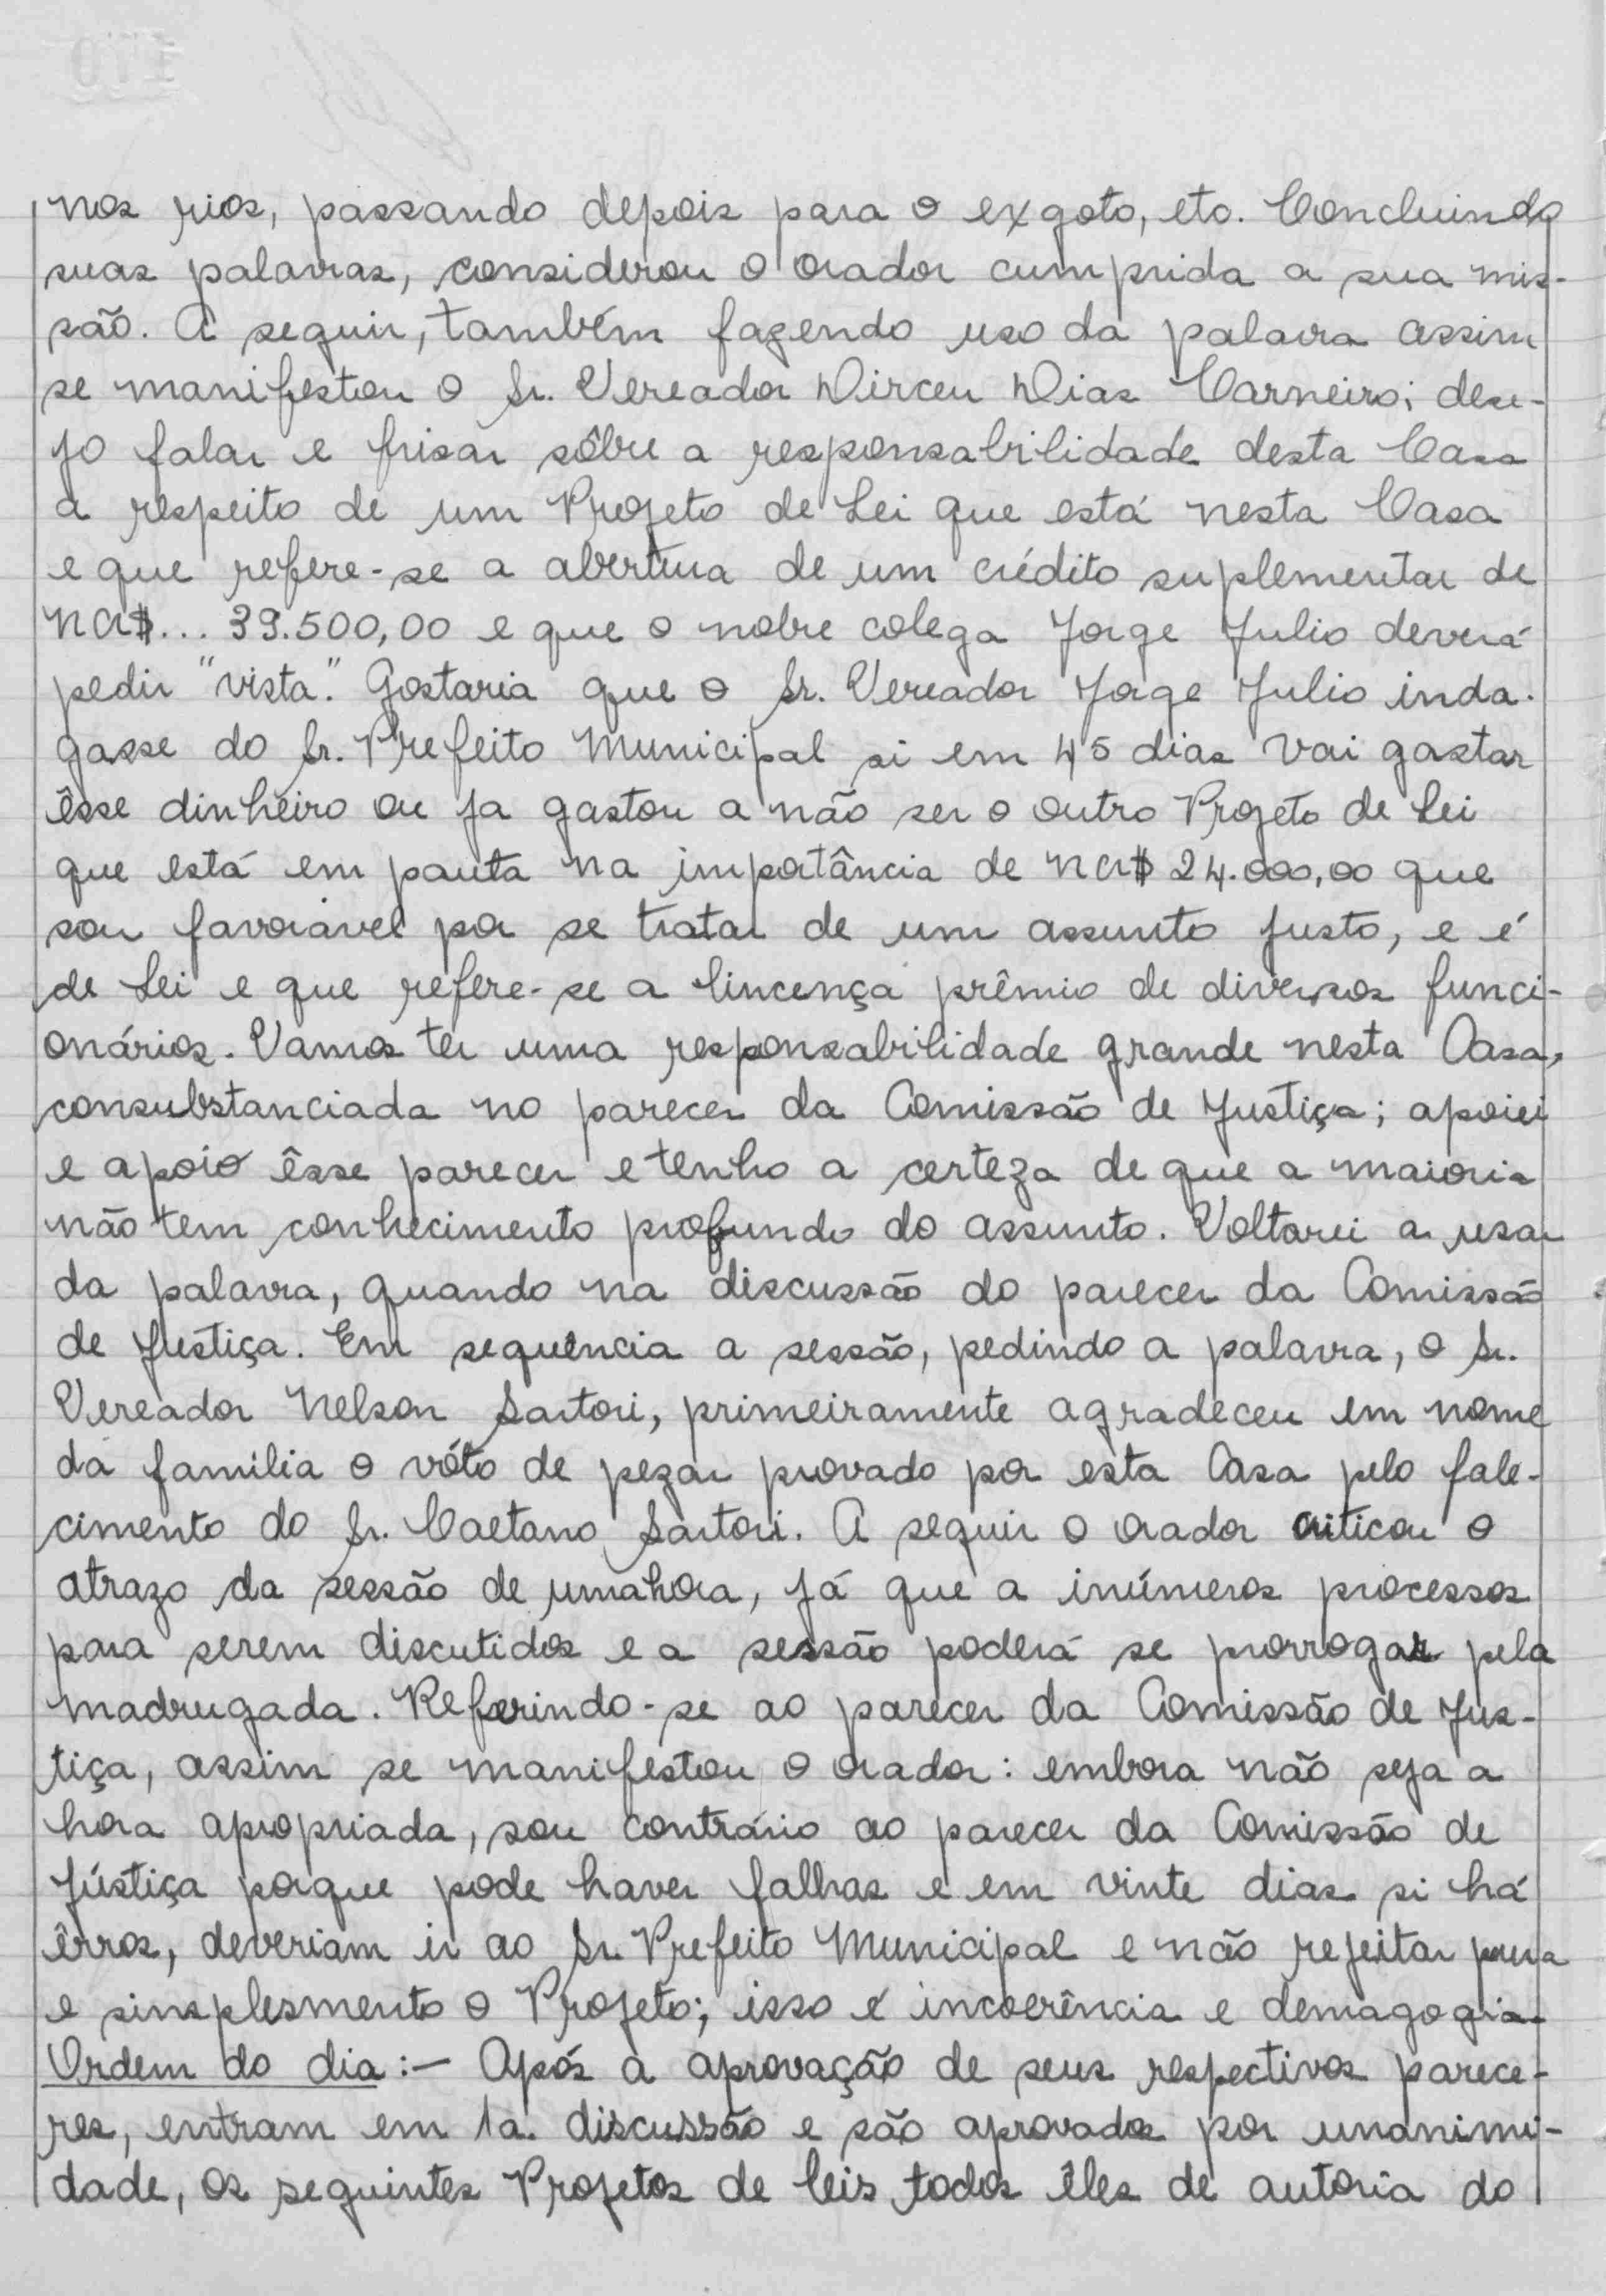 nos rios, passando depois para o exgoto, etc. Concluindo
suas palavras, considerou o orador cumprida a sua mis-
são. A seguir, também fazendo uso da palavra assim
se manifestou o Sr. Vereador Dirceu Dias Carneiro; dese-
jo falar e frisar sôbre a responsabilidade desta Casa
a respeito de um Projeto de Lei que está nesta Casa
e que refere-se a abertura de um crédito suplementar de
NCr$... 39.500,00 e que o nobre colega Jorge Julio deverá
pedir "vista". Gostaria que o Sr. Vereador Jorge Julio inda-
gasse do Sr. Prefeito Municipal si em 45 dias vai gastar
êsse dinheiro ou ja gastou a não ser o outro Projeto de Lei
que está em pauta na importância de NCr$ 24.000,00 que
sou favorável por se tratar de um assunto justo, e é
de Lei e que refere-se a lincença prêmio de diversos funci-
onários. Vamos ter uma responsabilidade grande nesta Casa,
consubstanciada no parecer da Comissão de Justiça; apoiei
e apoio êsse parecer e tenho a certeza de que a maioria
não tem conhecimento profundo do assunto. Voltarei a usar
da palavra, quando na discussão do parecer da Comissão
de Justiça. Em sequência a sessão, pedindo a palavra, o Sr.
Vereador Nelson Sartori, primeiramente agradeceu em nome
da família o vóto de pezar provado por esta Casa pelo fale-
cimento do Sr. Caetano Sartori. A seguir o orador criticou o
atrazo da sessão de uma hora, já que a inúmeros processos
para serem discutidos e a sessão poderá se prorrogar pela
madrugada. Referindo-se ao parecer da Comissão de Jus-
tiça, assim se manifestou o orador: embora não seja a
hora apropriada, sou contrário ao parecer da Comissão de
Jústiça porque pode haver falhas e em vinte dias si há
êrros, deveriam ir ao Sr. Prefeito Municipal e não rejeitar pura
e sinsplesmento o Projeto; isso é incoerência e demagogia.
Ordem do dia:- Após a aprovação de seus respectivos parece-
res, entram em 1a. discussão e são aprovados por unanimi-
dade, os seguintes Projetos de leis todos êles de autoria do